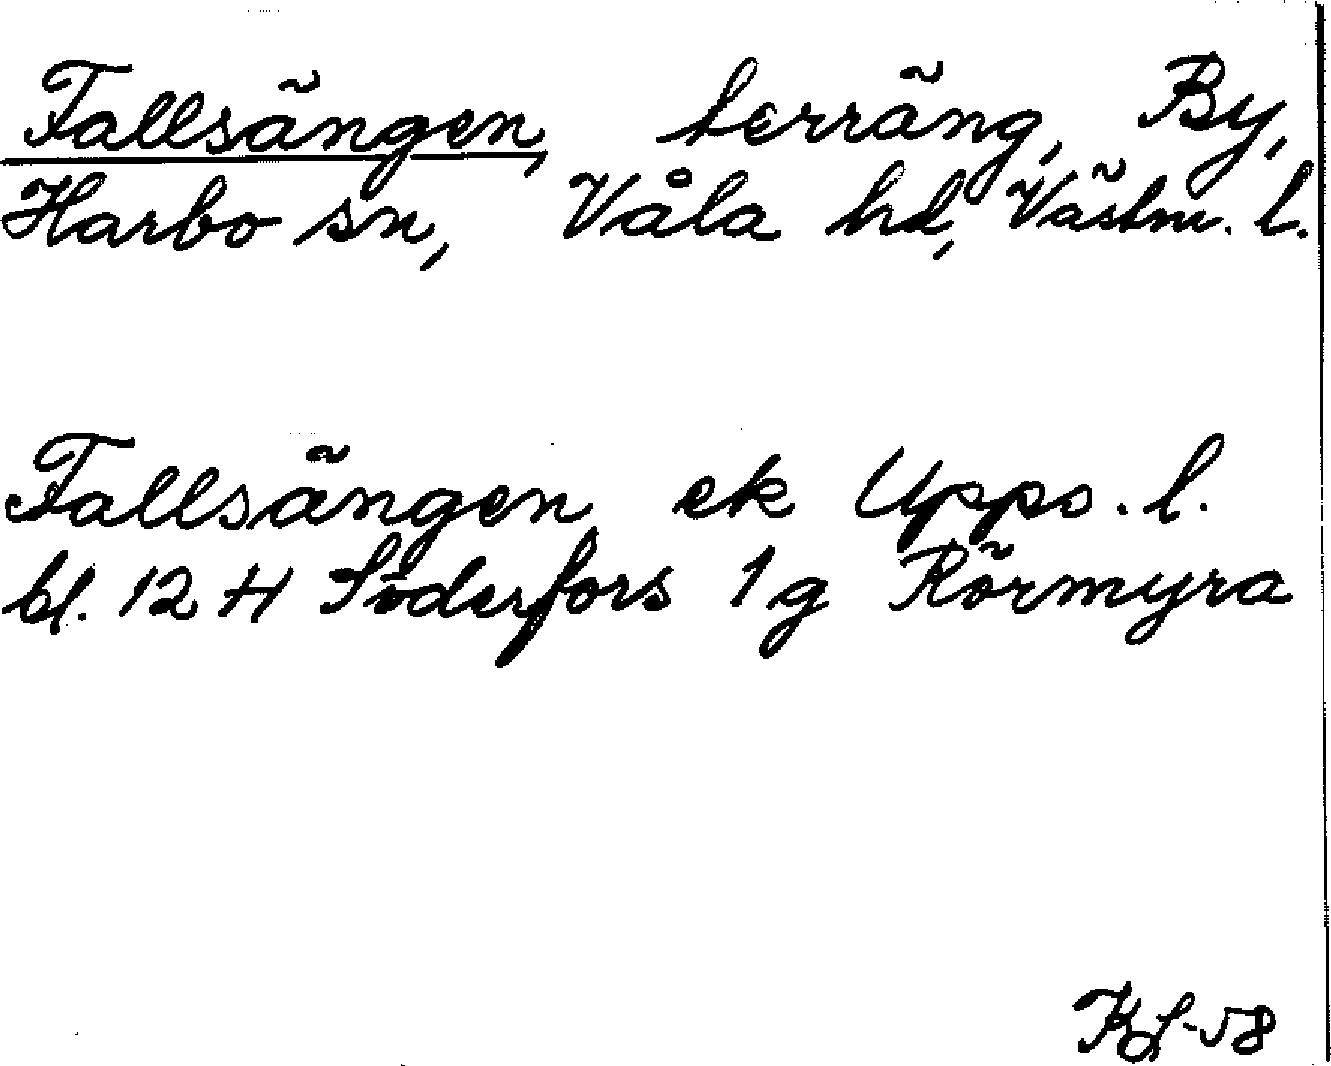 Fallsängen, terräng, By,
Harbo sn, Våla hd, Västm. l.
Fallsängen ek Upps. l.
bl. 12 H Söderfors 1 g Rörmyra